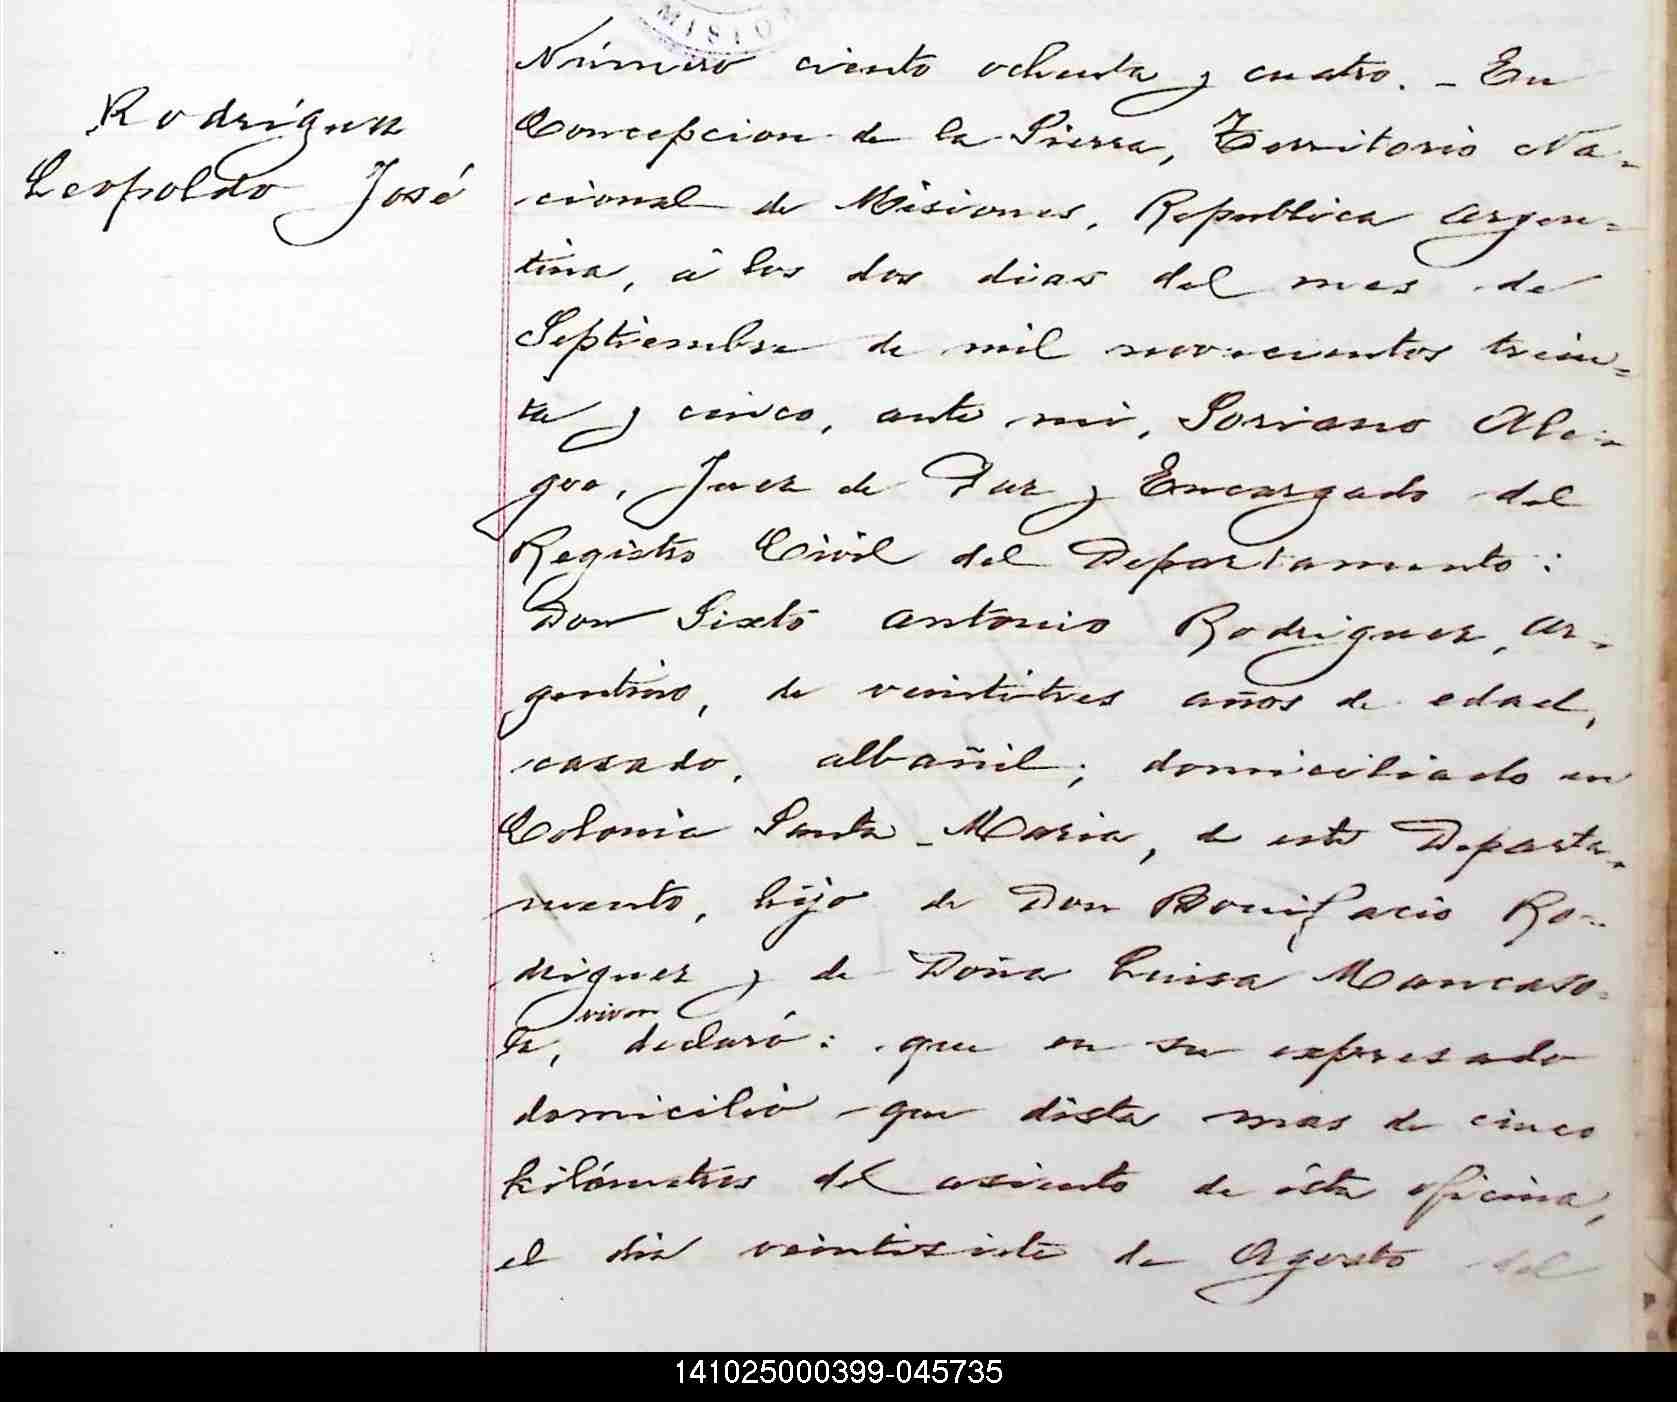 MISIO
Rodriguez
Leopoldo José
Número ciento ochenta y cuatro. - En
Concepcion de la Sierra, Territorio Na-
cional de Misiones, Republica Argen-
tina, á los dos dias del mes de
Septiembre de mil novecientos trein-
ta y cinco, ante mi, Soriano Ale-
gre, Juez de Paz y Encargado del
Registro Civil del Departamento:
Don Sixto Antonio Rodriguez, ar-
gentino, de veintitres años de edad,
casado, albañil, domiciliado en
Colonia Santa Maria, de este Departa-
mento, hijo de Don Bonifacio Ro-
driguez y de Doña Luisa
viven
declaró: que en su expresado
domicilio que dista mas de cinco
kilómetros del asiento de ésta oficina,
el dia veintisiete de Agosto del
141025000399-045735